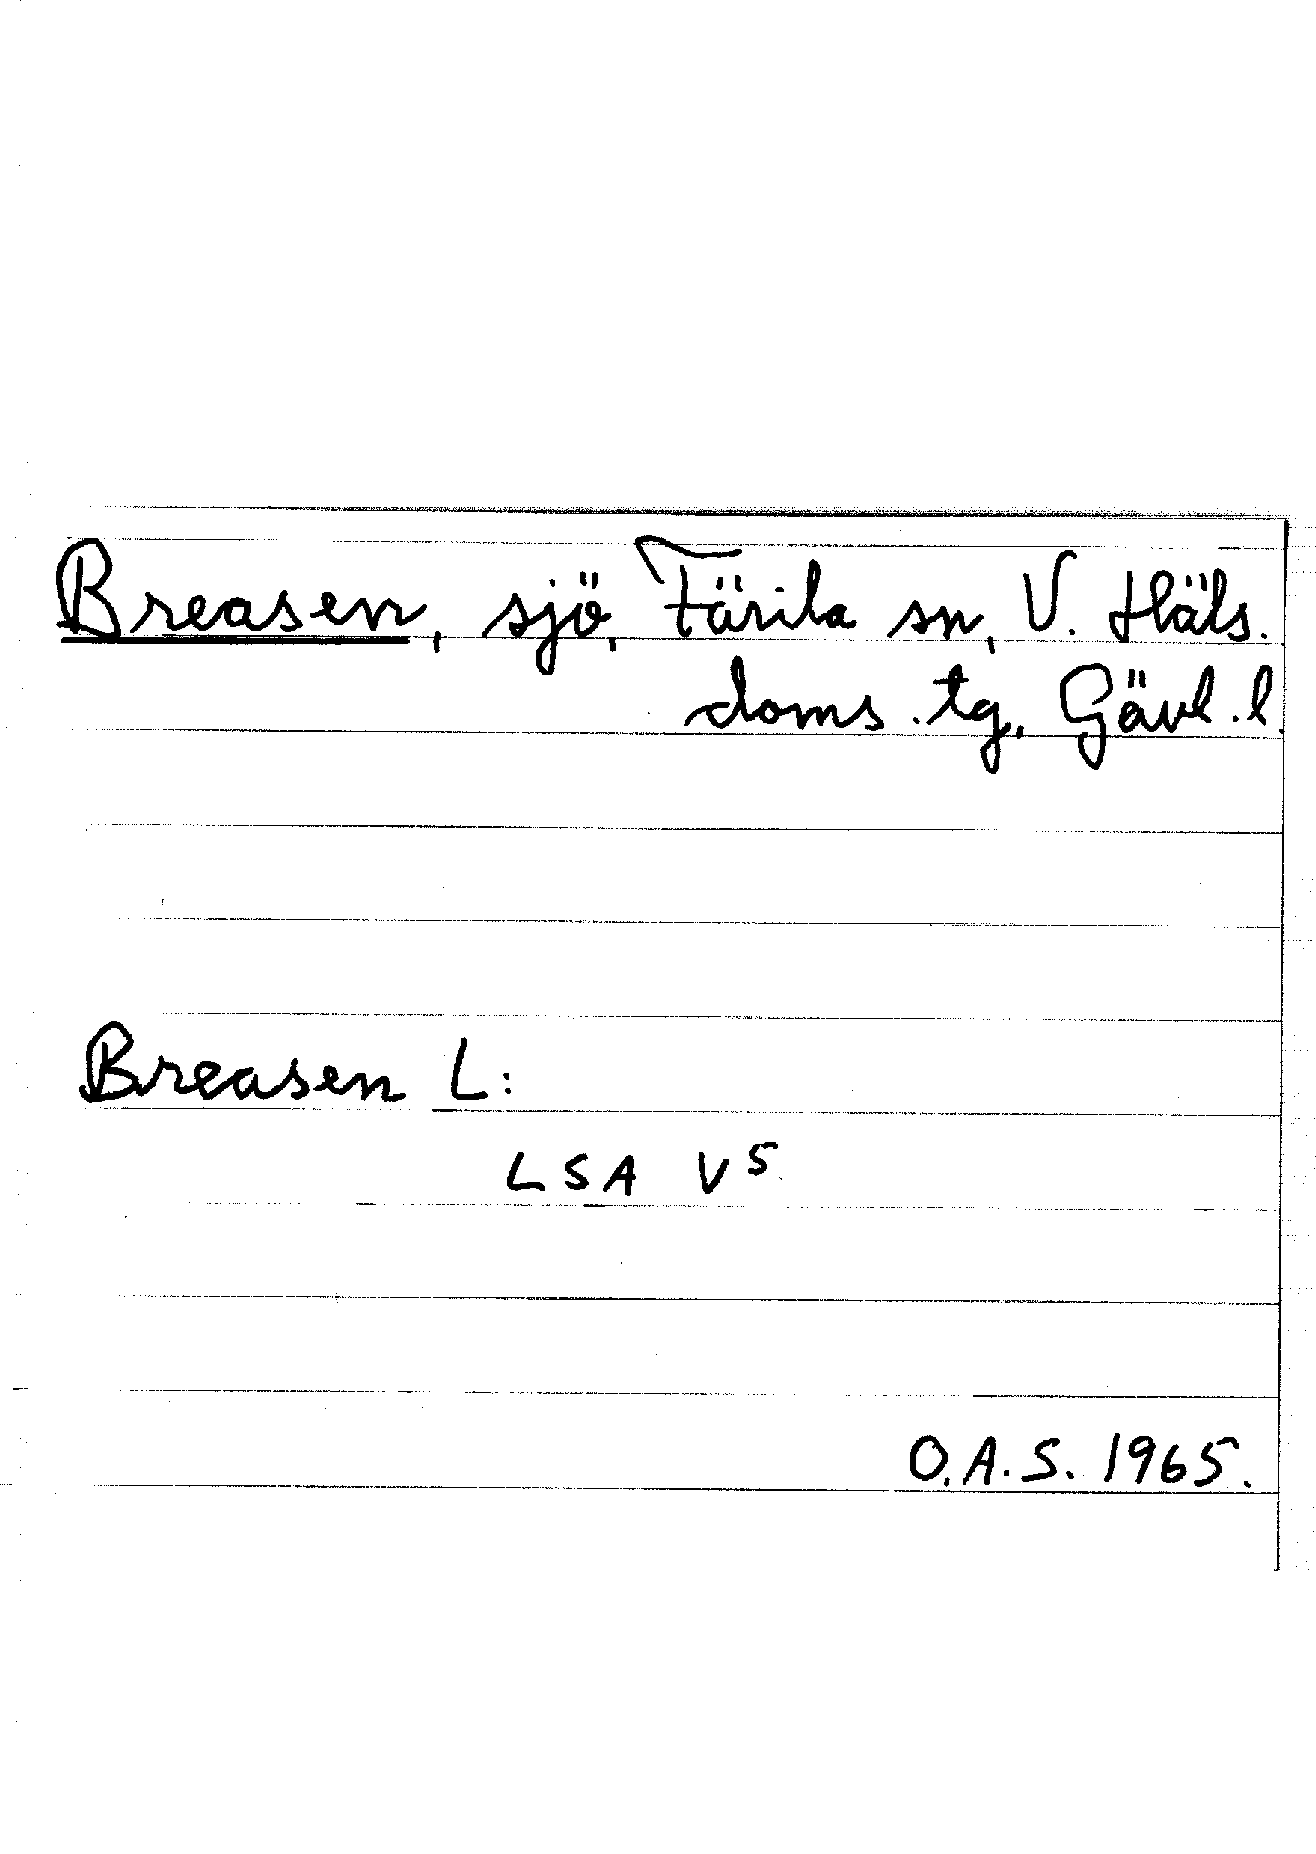 Breasen, sjö, Färila sn, V. Häls.
doms. tg, Gävl. l.
Breasen L:
LSA V 5
O.A.S. 1965.